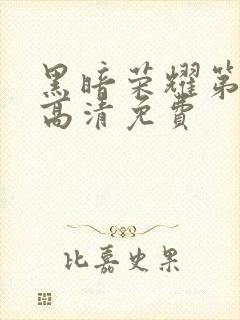 黑暗荣耀第
高清免费
比嘉史果